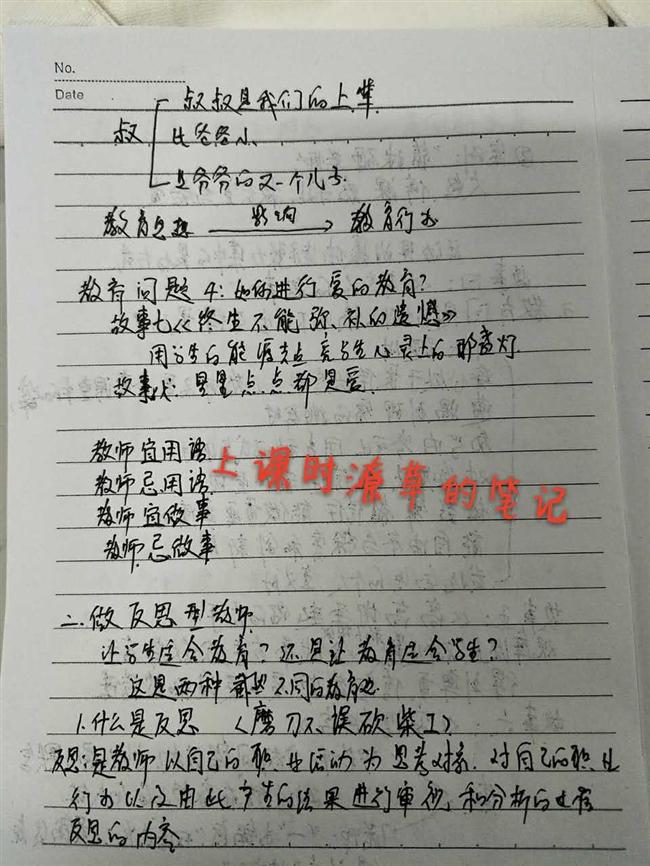 No.
Date
叔叔是我们的上辈
叔 比爸爸小
是爷爷的又一个儿子
教育思想 影响 教育行为
教育问题4:如何进行爱的教育?
故事七《终生不能弥补的遗憾》
用学生的能源去点亮学生心灵上的那盏灯
故事八:星星点点都是爱
教师宜用语
教师忌用语
教师宜做事
教师忌做事
上课时潦草的笔记
二.做反思型教师
让学生适合教育?还是让教育适合学生?
这是两种截然不同的教育
1.什么是反思 (磨刀不误砍柴工)
反思:是教师以自己的职业活动为思考对象.对自己的职业
行为以及由此产生的结果进行审视,和分析的过程
反思的内容